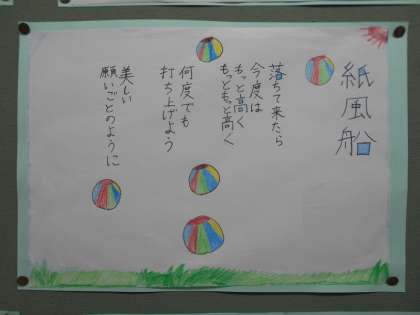 紙風船
落ちて来たら
今度は
もっと高く
もっともっと高く
何度でも
打ち上げよう
美しい
願いごとのように